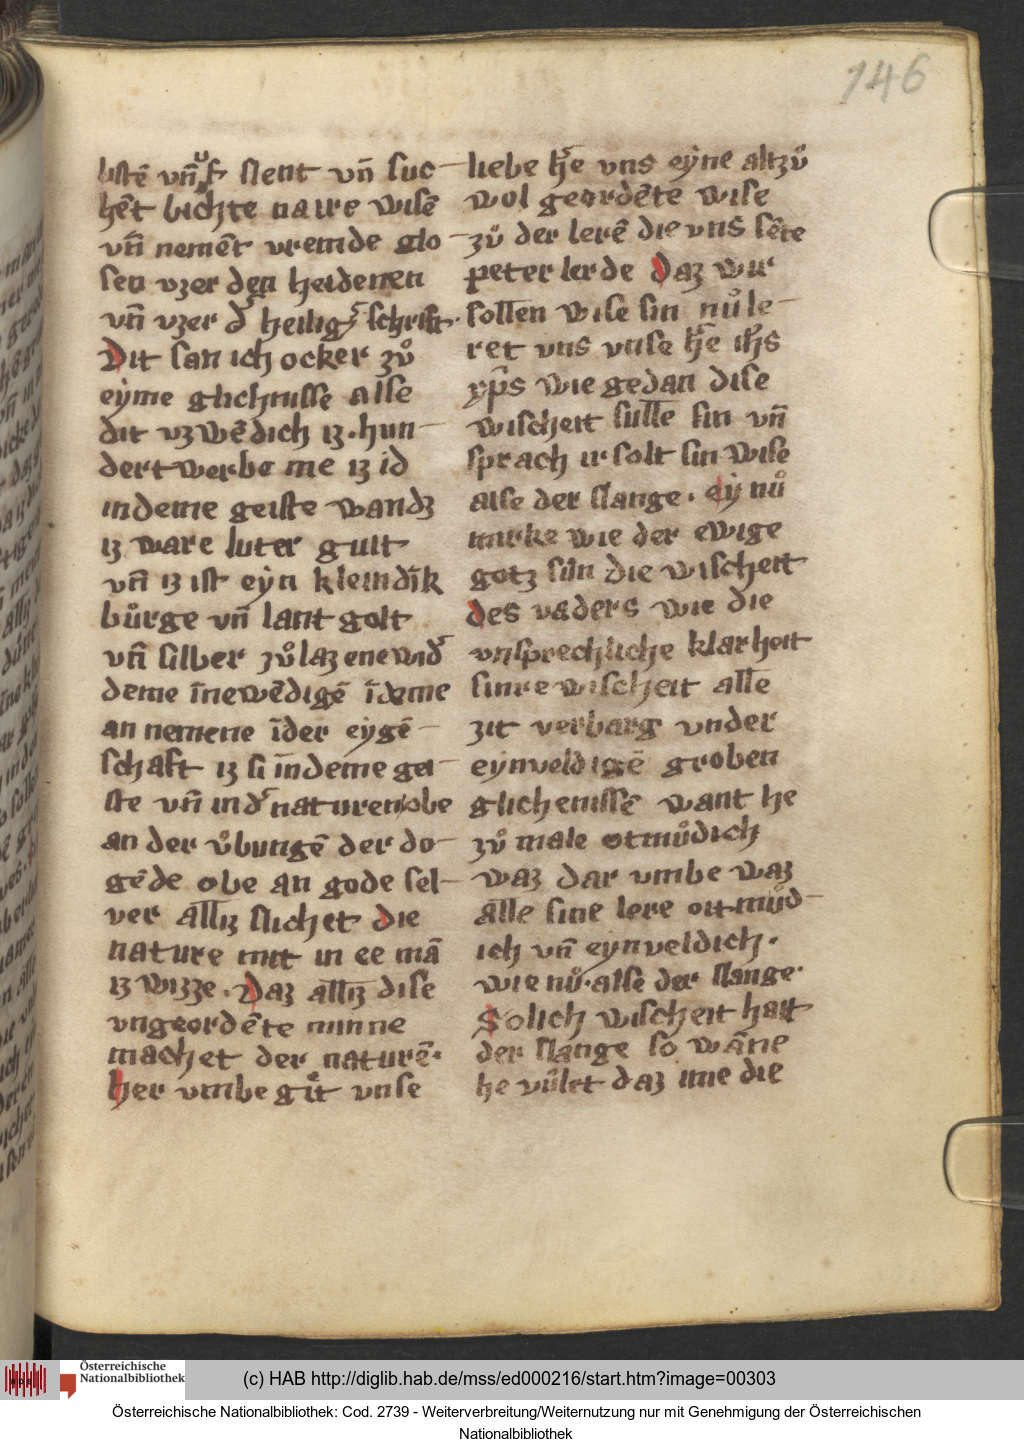 146
listē vn̄ uf stent vn̄ suc
hēt lichte naire wisē
vn̄ nemēt vremde glo
sen vzer den heidenen
vn̄ vzer d' heilig' schrift.
Dit san ich ocker zů
eyme glichnisse alse
dit vzwēdich iz. hun
dert werbe me iz id
indeme geiste wandz
iz ware luter guit
vn̄ iz ist eyn kleindīk
bůrge vn̄ lant golt
vn̄ silber zůlazene wid'
deme īnewēdigē īdeme
an nemene īder eygē
schaft iz si īndeme gei
ste vn̄ in d' naturen obe
an der v̊bungē der do
gēde obe an gode sel
ver alliz slichet die
nature mit in ee mā
iz wizze. Daz alliz dise
vngeordēte minne
machet der naturē.
her vmbe git vnse
liebe h'e vns eyne altzů
wol geordēte wise
zů der lerē die vns sēte
peter lerde Daz wir
sollen wise sin nů le
ret vns vnse h'e ih's
xp̄s wie gedan dise
wischeit sulle sin vn̄
sprach ir solt sin wise
alse der slange. ey nů
mirke wie der ewige
gotz sūn die wischeit
des vaders wie die
vnsprechliche klarheit
sinre wischeit alle
zit verbarg vnder
eynveldigē groben
glichenissē want he
zů male otmůdich
waz dar vmbe waz
alle sine lere oitmůd
ich vn̄ eynveldich.
wie nů. alse der slange.
Solich wischeit hait
der slange so wāne
he vůlet daz ime die
(c) HAB http://diglib.hab.de/mss/ed000216/start.htm?image=00303
Österreichische
Nationalbibliothek
Österreichische Nationalbibliothek: Cod. 2739 - Weiterverbreitung/Weiternutzung nur mit Genehmigung der Österreichischen
Nationalbibliothek